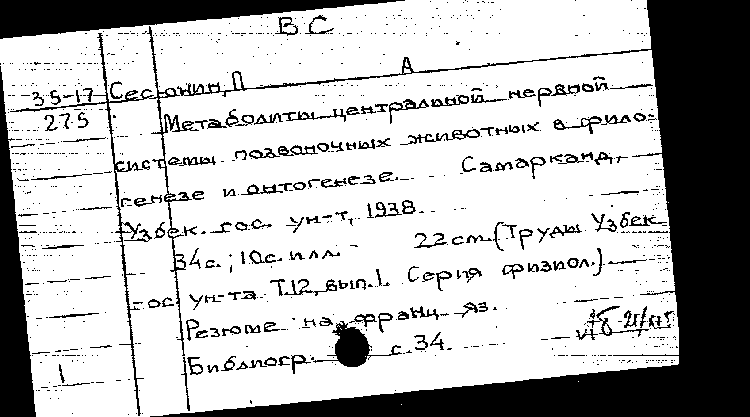 ВС
35-17 Сесюнин, П А
275 Метаболиты центральной нервной
системы позвоночных животных в фило-
генезе и онтогенезе. Самарканд,
Узбек. гос. ун-т, 1938.
34 с.; 10 с. илл. 22 см. (Труды Узбек
гос. ун-та Т.12, вып.1. Серия физиол.)
Резюме на франц. яз.
1 Библиогр. с. 34.